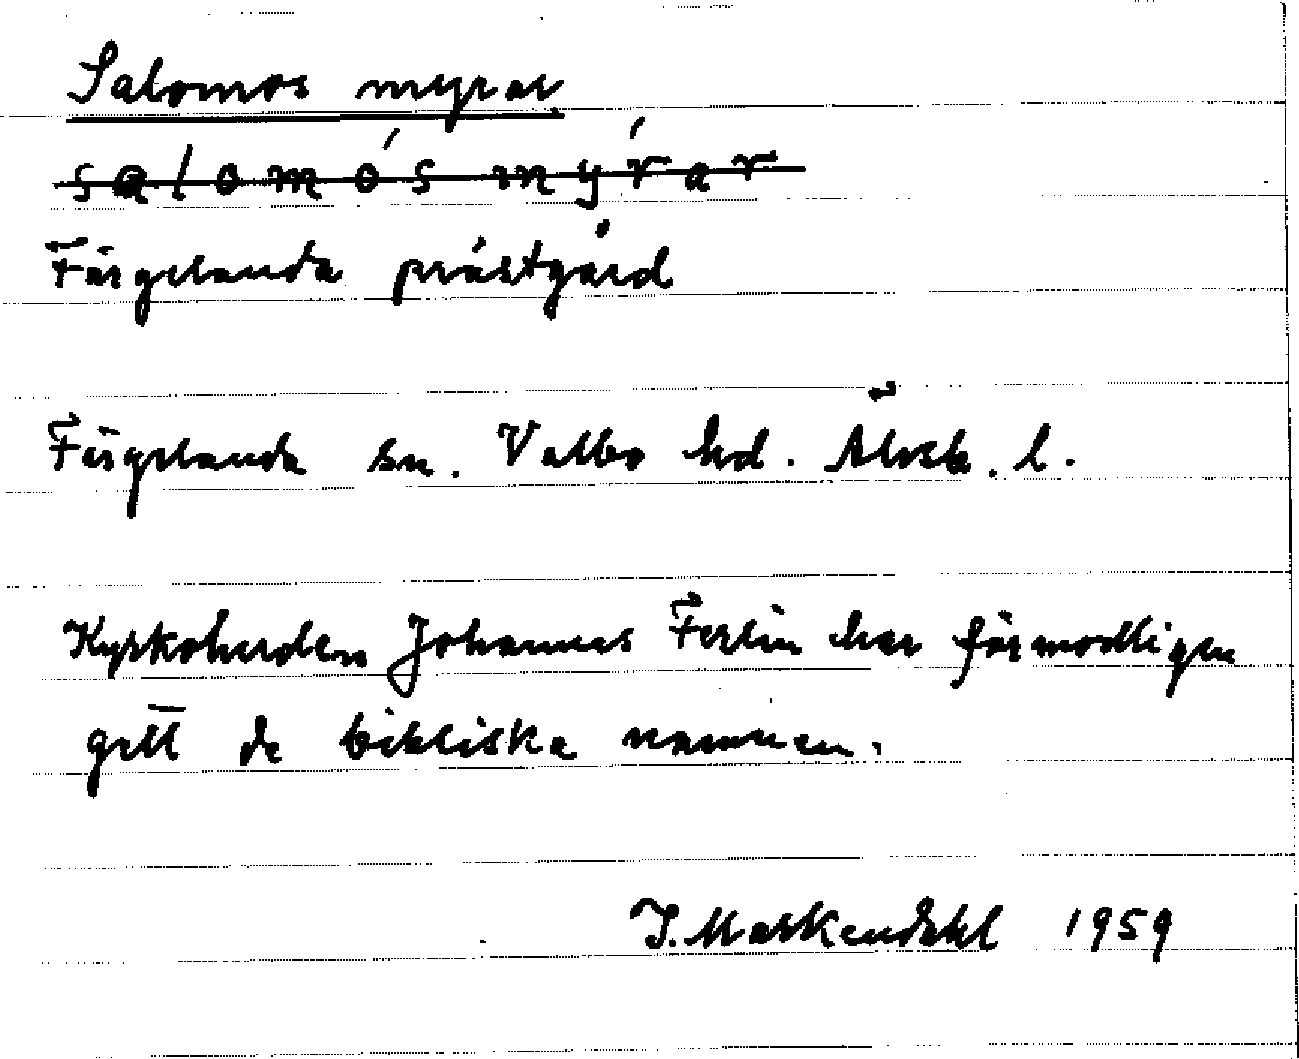 Salomos myrar
salomós mýrar
Färgelanda prästgård
Färgelanda sn. Valbo hd. Älvsb. l.
Kyrkoherden Johannes Ferlin har förmodligen
gett de bibliska namnen.
J. Markendahl 1959